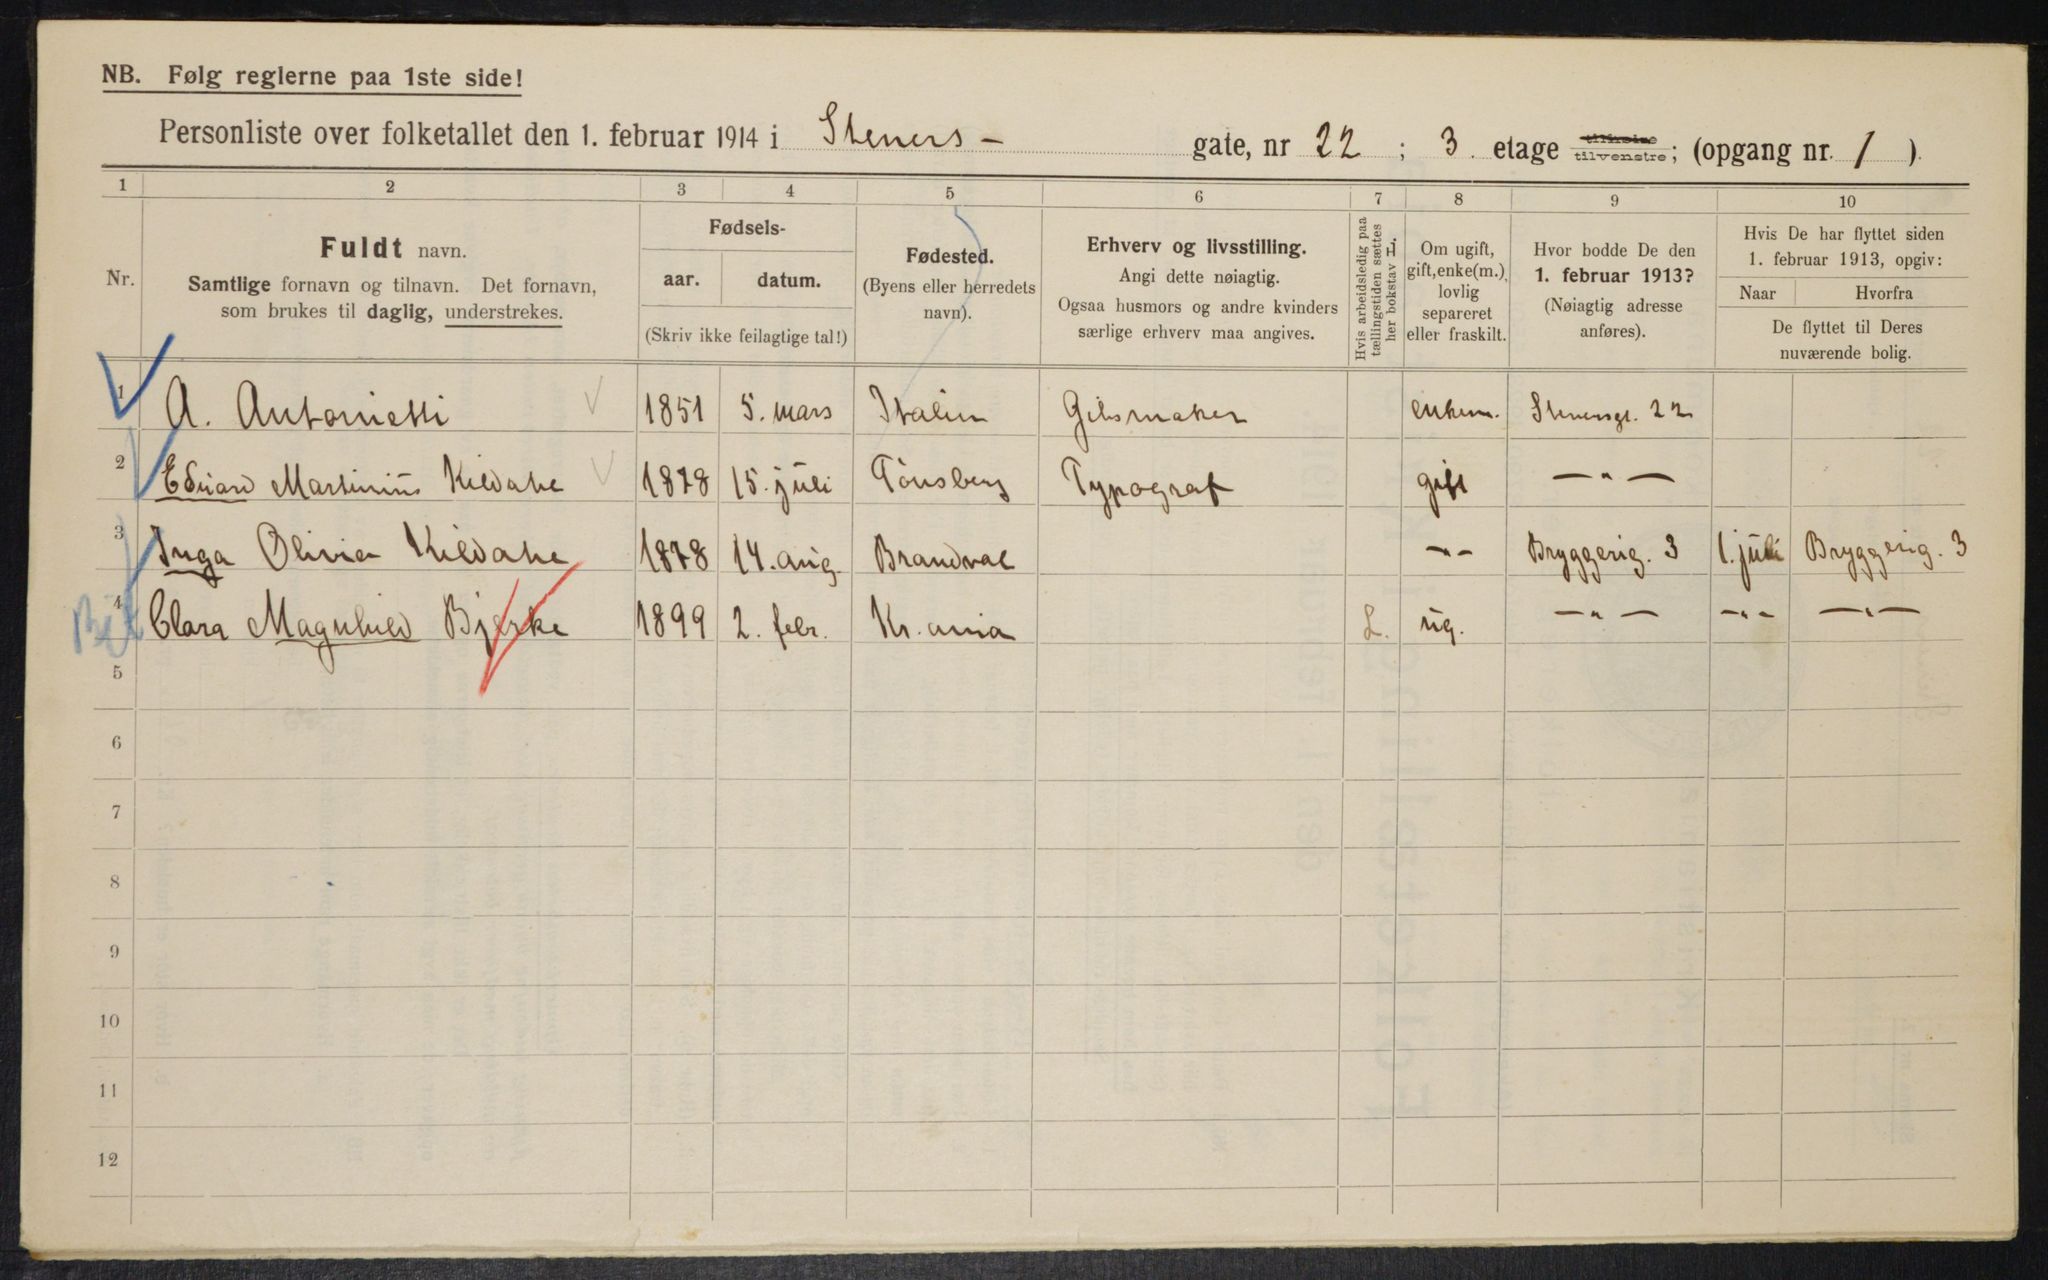 NB. Følg reglerne paa 1ste side!
Personliste over folketallet den 1. februar 1914 i Steners - gate, nr 22 ; 3. etage tilhøire tilvenstre; (opgang nr. 1 ).
1 2 3 4 5 6 7 8 9 10
Nr.
Fuldt navn.
Samtlige fornavn og tilnavn. Det fornavn,
som brukes til daglig, understrekes.
Fødsels-
aar. datum.
(Skriv ikke feilagtige tal!)
Fødested.
(Byens eller herredets
navn).
Erhverv og livsstilling.
Angi dette nøiagtig.
Ogsaa husmors og andre kvinders
særlige erhverv maa angives.
Hvis arbeidsledig paa
tællingstiden sættes
her bokstav L.
Om ugift,
gift, enke(m.),
lovlig
separeret
eller fraskilt.
Hvor bodde De den
1. februar 1913?
(Nøiagtig adresse
anføres).
Hvis De har flyttet siden
1. februar 1913, opgiv:
Naar Hvorfra
De flyttet til Deres
nuværende bolig.
1 A. Antonietti 1851 5. mars Italien Gibsmaker enkem. Stenersgt. 22
2 Edvard Martinius Kildahe 1878 15. juli Tönsberg Typograf gift — " —
3 Inga Olivia Kildahe 1878 14. aug. Brandval - " - Bryggerig. 3 1. juli Bryggerig. 3
4 Clara Magnhild Bjerke 1899 2. febr. Kr.ania L. ug. — " — - " - — " —
5
6
7
8
9
10
11
12